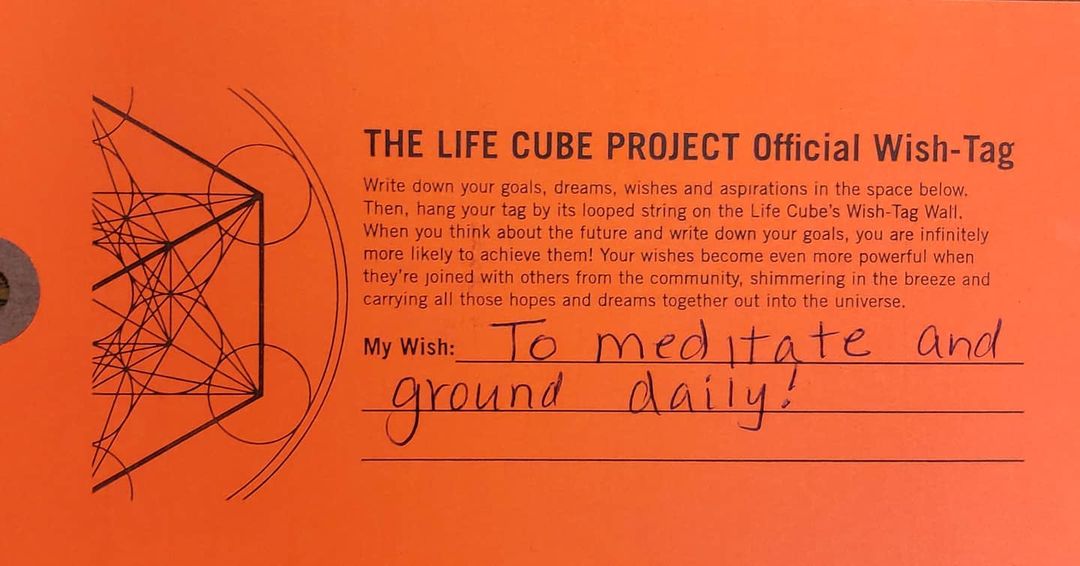 THE LIFE CUBE PROJECT Official Wish-Tag
Write down your goals, dreams, wishes and aspirations in the space below.
Then, hang your tag by its looped string on the Life Cube's Wish-Tag Wall.
When you think about the future and write down your goals, you are infinitely
more likely to achieve them! Your wishes become even more powerful when
they're joined with others from the community, shimmering in the breeze and
carrying all those hopes and dreams together out into the universe.
My Wish: To meditate and
ground daily!